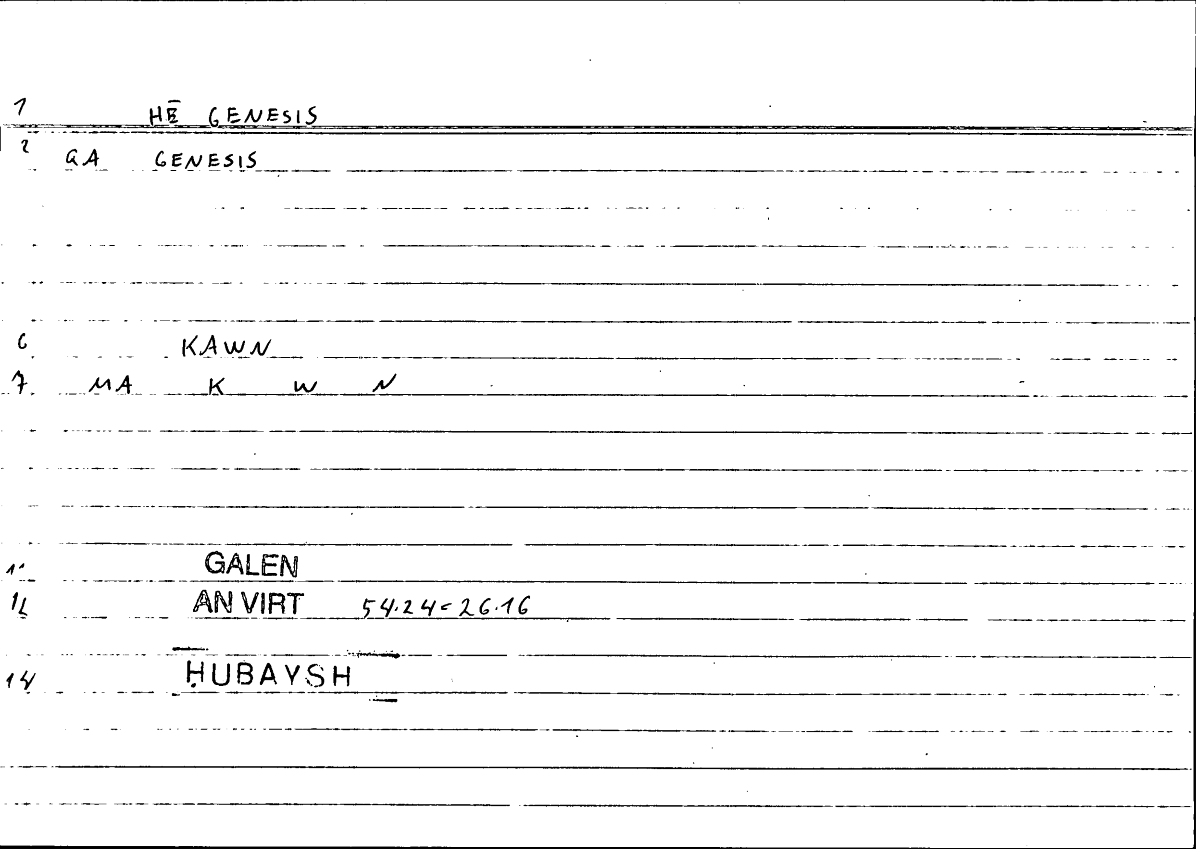 1 HĒ GENESIS
2 GA GENESIS
6 KAWN
7 MA K W N
11 GALEN
12 AN VIRT 54.24=26.16
14 ḤUBAYSH